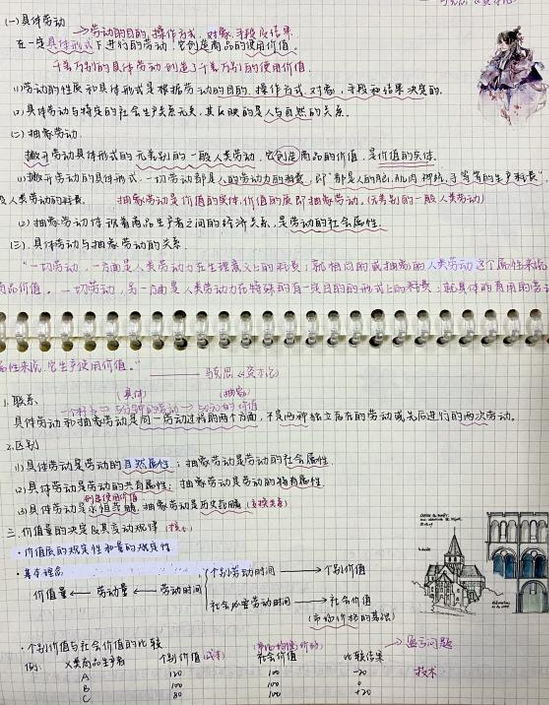 (一)具体劳动
→劳动的目的,操作方式,对象,手段及结果
在一定具体形式下进行的劳动,它创造商品的使用价值.
千差万别的具体劳动创造了千差万别的使用价值.
(1)劳动的性质和具体形式是根据劳动的目的,操作方式,对象,手段和结果决定的.
(2)具体劳动与特定的社会生产关系无关,其反映的是人与自然的关系.
(二)抽象劳动.
撇开劳动具体形式的无差别的一般人类劳动.它创造商品的价值,是价值的实体.
(1)撇开劳动的具体形式,一切劳动都是人的劳动力的耗费,即"都是人的脑,肌肉,神经,手等等的生产耗费".
及人类劳动的耗费. 抽象劳动是价值的实体,价值的质即抽象劳动,(无差别的一般人类劳动)
(2)抽象劳动体现着商品生产者之间的经济关系,是劳动的社会属性.
(三).具体劳动与抽象劳动的关系.
"一切劳动,一方面是人类劳动力在生理意义上的耗费;就相同的或抽象的人类劳动这个属性来说
商品价值。一切劳动,另一方面是人类劳动力在特殊的有一定目的的形式上的耗费;就具体的有用的劳动
属性来说,它生产使用价值。"
—— 马克思《资本论》
1.联系. (具体) (抽象)
具体劳动和抽象劳动是同一劳动过程的两个方面,不是两种独立存在的劳动或先后进行的两次劳动.
2.区别
(1)具体劳动是劳动的自然属性;抽象劳动是劳动的社会属性.
(2)具体劳动是劳动的共有属性;抽象劳动是劳动的特有属性.
创造使用价值
(3)具体劳动是永恒范畴,抽象劳动是历史范畴(交换关系)
三.价值量的决定及其变动规律(核心)
·价值质的规定性和量的规定性
·基本理念
个别劳动时间 → 个别价值
价值量 ← 劳动量 ← 劳动时间
社会必要劳动时间 → 社会价值
(市场价格的基础)
·个别价值与社会价值的比较 → 盈亏问题
例: X类商品生产者 个别价值(成本) 社会价值 比较结果 技术
A 120 100 -20
B 100 100 0
C 80 100 +20